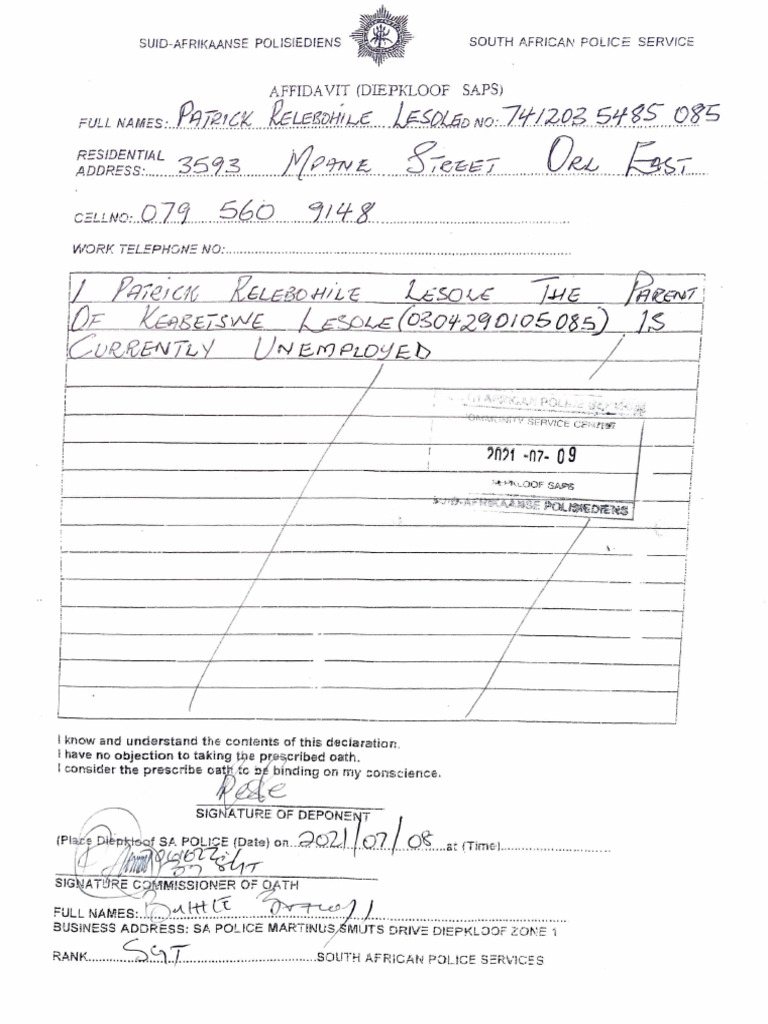 SUID-AFRIKAANSE POLISIEDIENS SOUTH AFRICAN POLICE SERVICE
AFFIDAVIT (DIEPKLOOF SAPS)
FULL NAMES: PATRICK RELEBOHILE LESOLE ID NO: 741203 5485 085
RESIDENTIAL ADDRESS: 3593 MPANE STREET ORL EAST
CELLNO: 079 560 9148
WORK TELEPHONE NO:
I PATRICK RELEBOHILE LESOLE THE PARENT
OF KEABETSWE LESOLE (0304290105085) IS
CURRENTLY UNEMPLOYED
SOUTH AFRICAN POLICE SERVICE
COMMUNITY SERVICE CENTRE
2021-07-09
DIEPKLOOF SAPS
SUID-AFRIKAANSE POLISIEDIENS
I know and understand the contents of this declaration.
I have no objection to taking the prescribed oath.
I consider the prescribe oath to be binding on my conscience.
SIGNATURE OF DEPONENT
(Place Diepkloof SA POLICE (Date) on 2021/07/08 at (Time)
SGT
SIGNATURE COMMISSIONER OF OATH
FULL NAMES:
BUSINESS ADDRESS: SA POLICE MARTINUS SMUTS DRIVE DIEPKLOOF ZONE 1
RANK SGT SOUTH AFRICAN POLICE SERVICES